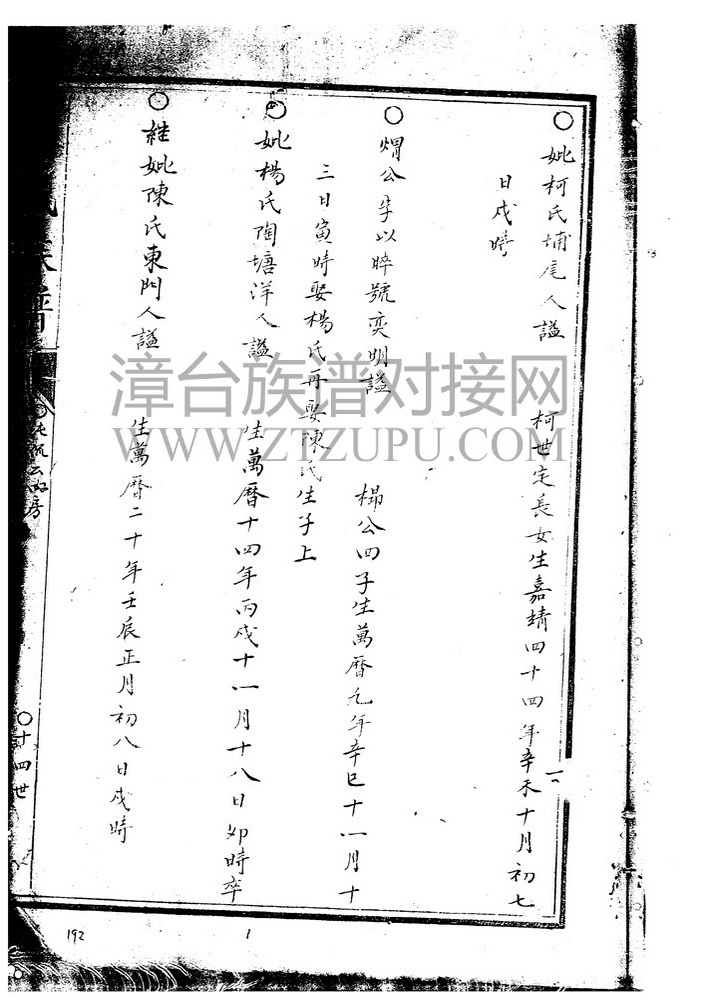 ○妣柯氏埔尾人謚 柯世定長女生嘉靖四十四年辛未十月初七
日戌時
○熠公字以晬號奕明謚 楊公四子生萬曆九年辛巳十一月十
三日寅時娶楊氏再娶陳氏生子上
○妣楊氏陶塘洋人謚 生萬曆十四年丙戌十一月十八日卯時卒
○継妣陳氏東門人謚 生萬曆二十年壬辰正月初八日戌時
族譜
房
○十四世
192
1
漳台族谱对接网
WWW.ZTZUPU.COM